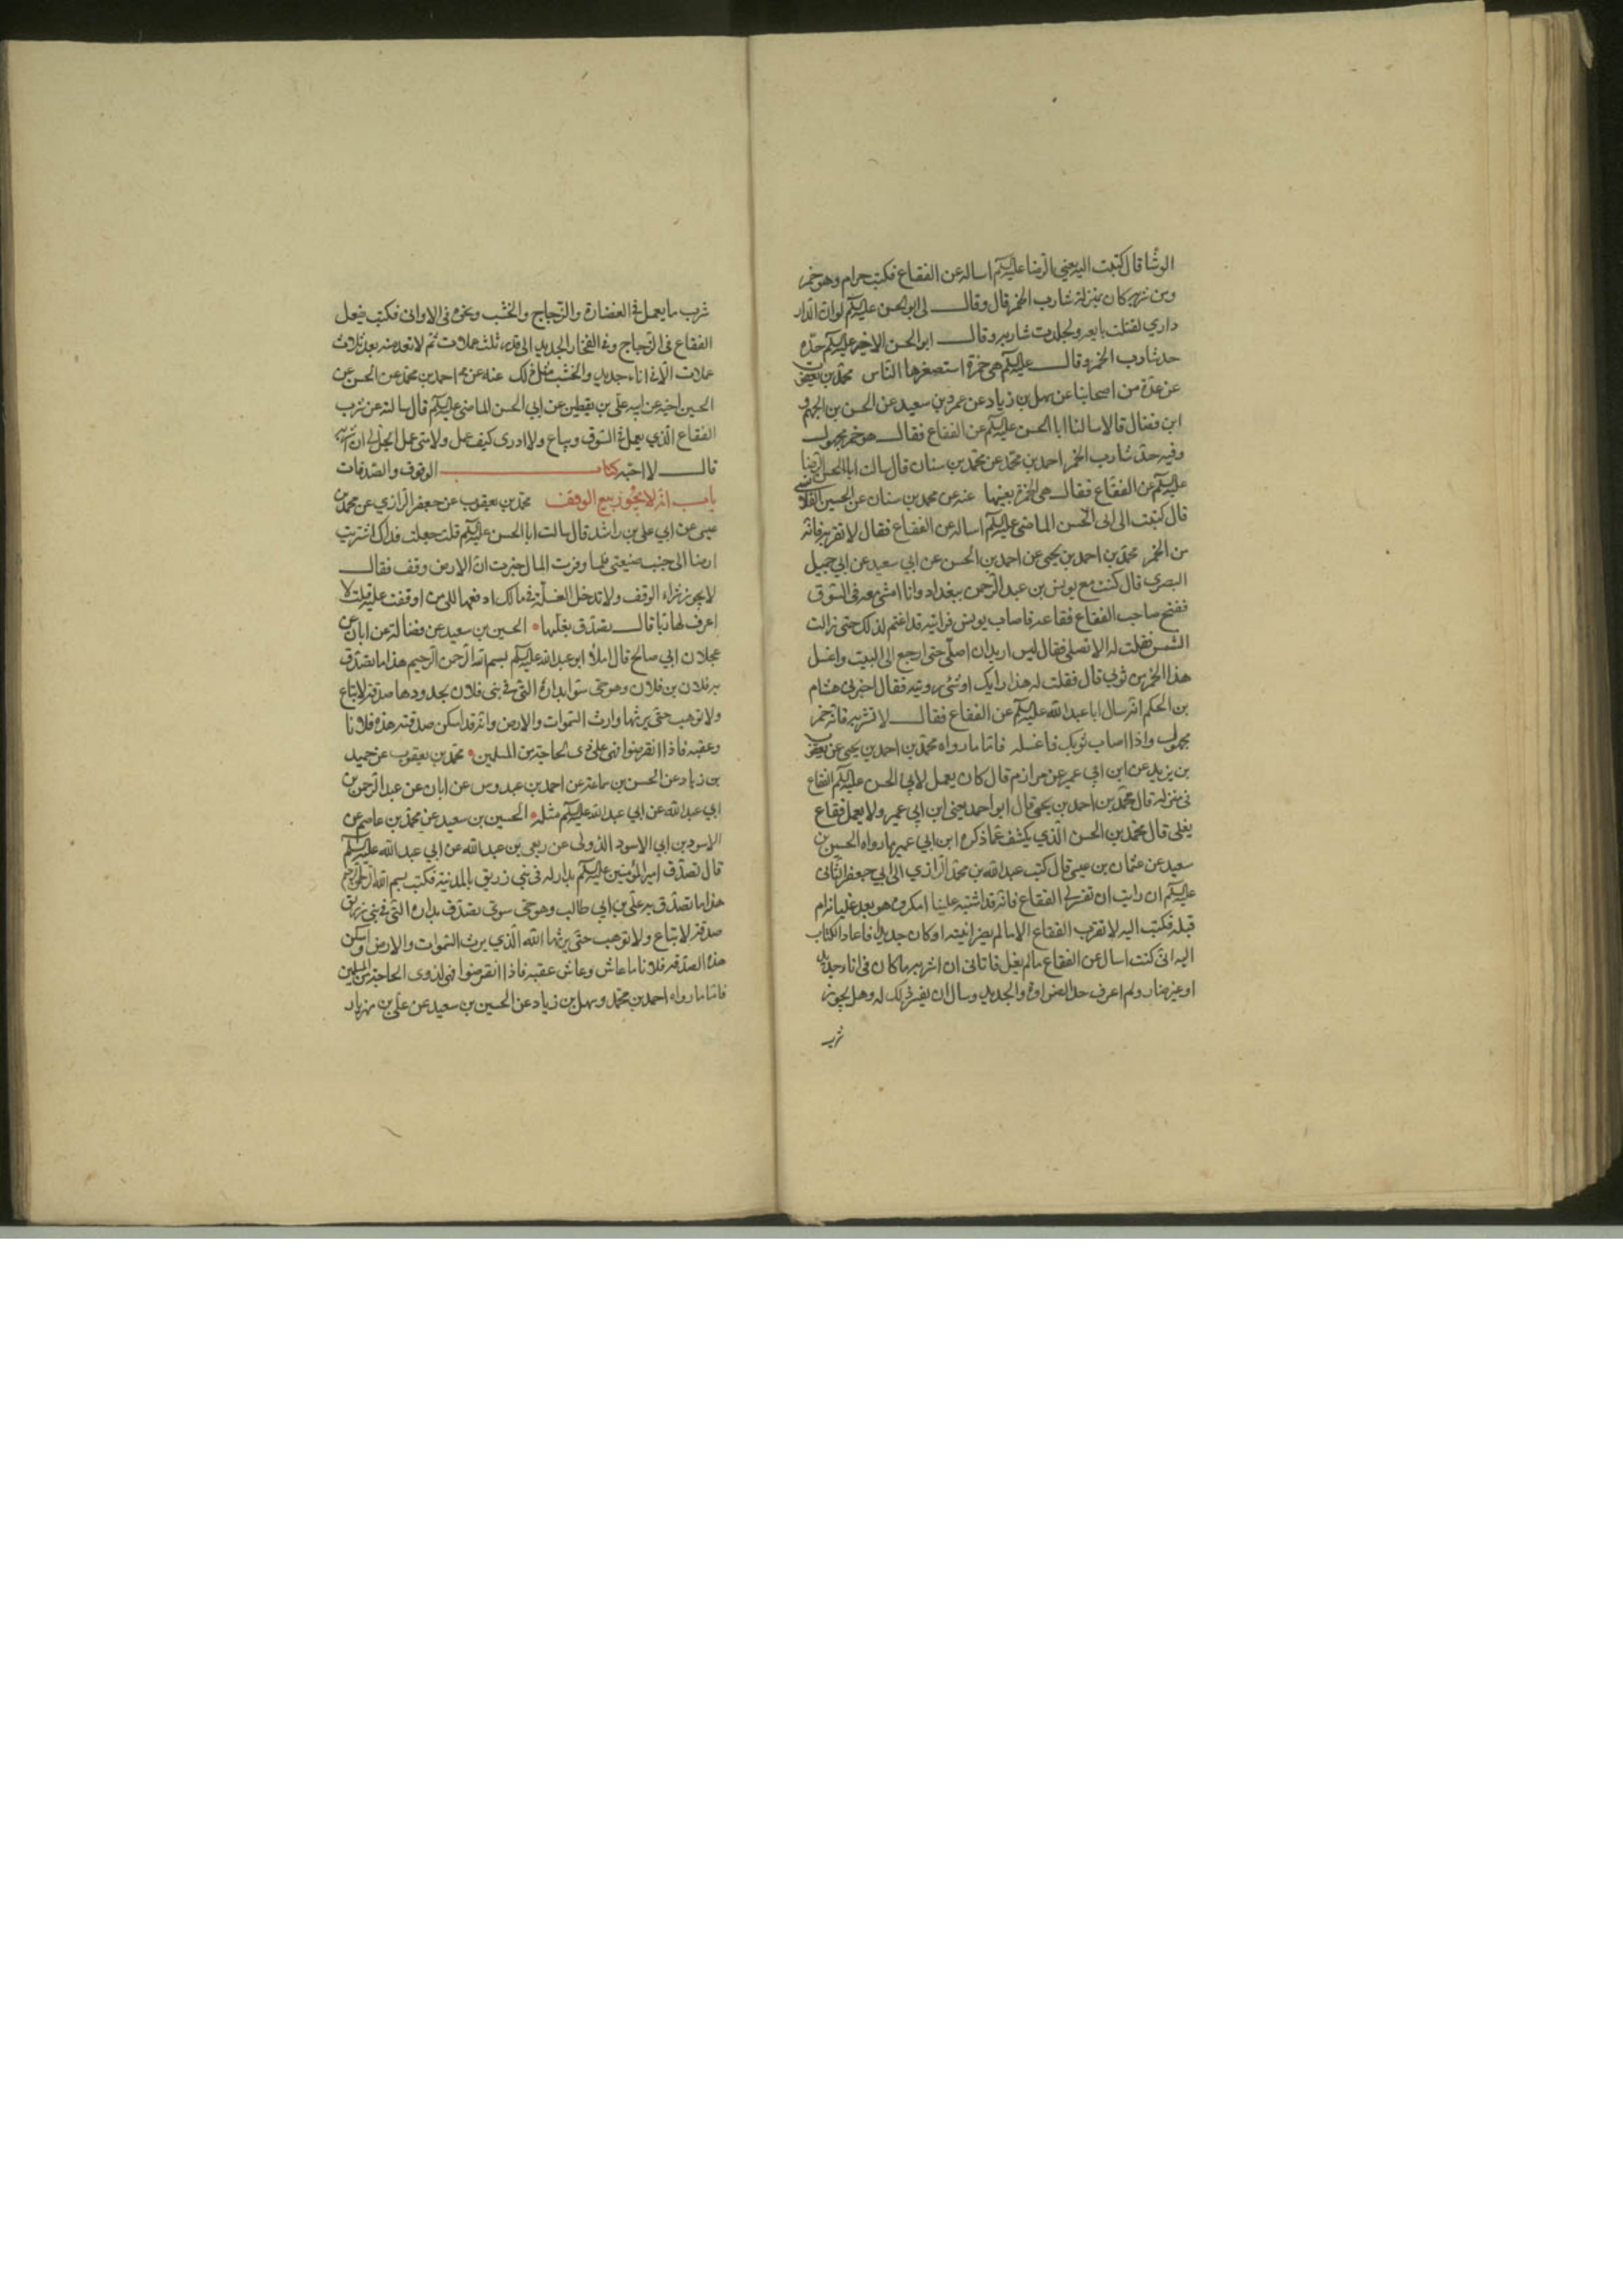 الوشا قال كتبت اليه يعني الرضا عليه السلم اساله عن الفقاع فكتب حرام وهو خمر
ومن شربه كان بمنزلة شارب الخمر قال وقال لى ابو الحسن عليه السلم لو ان الدار
داري لقتلت بايعه ولجلدت شاربه وقال ابو الحسن الاخير عليه السلم حده
حد شارب الخمر وقال عليه السلم هى خمرة استصغرها الناس محمد بن يعقوب
عن عدة من اصحابنا عن سهل بن زياد عن عمرو بن سعيد عن الحسن بن الجهم و
ابن فضال قالا سالنا ابا الحسن عليه السلم عن الفقاع فقال هو خمر مجهول
وفيه حد شارب الخمر احمد بن محمد عن محمد بن سنان قال سالت ابا الحسن الرضا
عليه السلم عن الفقاع فقال هى الخمرة بعينها عنه عن محمد بن سنان عن الحسين القلانسى
قال كتبت الى ابى الحسن الماضى عليه السلم اساله عن الفقاع فقال لا تقربه فانه
من الخمر محمد بن احمد بن يحيى عن احمد بن الحسن عن ابي سعيد عن ابي جميل
البصرى قال كنت مع يونس بن عبد الرحمن ببغداد وانا امشى معه فى السوق
ففتح صاحب الفقاع فقاعه فاصاب يونس فرايته قد اغتم لذلك حتى زالت
الشمس فقلت له الا تصلى فقال ليس اريد ان اصلى حتى ارجع الى البيت واغسل
هذا الخمر من ثوبى قال فقلت له هذا رايك او شئ رويته فقال اخبرنى هشام
بن الحكم انه سال ابا عبد الله عليه السلم عن الفقاع فقال لا تشربه فانه خمر
مجهول واذا اصاب ثوبك فاغسله فاما ما رواه محمد بن احمد بن يحيى عن يعقوب
بن يزيد عن ابن ابي عمير عن مرازم قال كان يعمل لابى الحسن عليه السلم الفقاع
فى منزله قال محمد بن احمد بن يحيى قال ابو احمد يعنى ابن ابي عمير ولا يعمل فقاع
يغلى قال محمد بن الحسن الذي يكشف عما ذكره ابن ابي عمير ما رواه الحسين بن
سعيد عن عثمان بن عيسى قال كتب عبد الله بن محمد الرازي الى ابي جعفر الثانى
عليه السلم ان رايت ان تفسر لى الفقاع فانه قد اشتبه علينا امكروه هو بعد غليانه ام
قبله فكتب اليه لا تقرب الفقاع الا ما لم يضر انيته او كان جديدا فاعاد الكتاب
اليه انى كنت اسال عن الفقاع ما لم يغل فاتانى ان اشربه ما كان فى اناء جديد
او غير ضار ولم اعرف حد الضراوة والجديد وسال ان يفسر ذلك له وهل يجوز
شرب
شرب ما يعمل فى الغضارة والزجاج والخشب ونحوه فى الاوانى فكتب يفعل
الفقاع فى الزجاج وفى الفخار الجديد الى قدر ثلث عملات ثم لا تعد منه بعد ثلاث
عملات الا فى اناء جديد والخشب مثل ذلك عنه عن احمد بن محمد عن الحسن عن
الحسين اخيه عن ابيه على بن يقطين عن ابي الحسن الماضى عليه السلم قال سالته عن شرب
الفقاع الذي يعمل فى السوق ويباع ولا ادرى كيف عمل ولا متى عمل ايحل لى ان اشربه
قال لا احبه كتاب الوقوف والصدقات
باب انه لا يجوز بيع الوقف محمد بن يعقوب عن جعفر الرازي عن محمد بن
عيسى عن ابي على بن راشد قال سالت ابا الحسن عليه السلم قلت جعلت فداك اشتريت
ارضا الى جنب ضيعتى فلما وفرت المال خبرت ان الارض وقف فقال
لا يجوز شراء الوقف ولا تدخل الغلة فى مالك ادفعها الى من اوقفت عليه قلت لا
اعرف لها ربا قال تصدق بغلتها الحسين بن سعيد عن فضالة عن ابان عن
عجلان ابي صالح قال املا ابو عبد الله عليه السلم بسم الله الرحمن الرحيم هذا ما تصدق
به فلان بن فلان وهو حى سوى بداره التى فى بنى فلان بحدودها صدقة لا تباع
ولا توهب حتى يرثها وارث السموات والارض وانه قد اسكن صدقته هذه فلانا
وعقبه فاذا انقرضوا فهى على ذى الحاجة من المسلمين محمد بن يعقوب عن حميد
بن زياد عن الحسن بن سماعة عن احمد بن عبدوس عن ابان عن عبد الرحمن بن
ابي عبد الله عن ابي عبد الله عليه السلم مثله الحسين بن سعيد عن محمد بن عاصم عن
الاسود بن ابي الاسود الدؤلى عن ربعى بن عبد الله عن ابي عبد الله عليه السلم
قال تصدق امير المؤمنين عليه السلم بدار له فى بنى زريق بالمدينة فكتب بسم الله الرحمن الرحيم
هذا ما تصدق به على بن ابي طالب وهو حى سوى تصدق بداره التى فى بنى زريق
صدقة لا تباع ولا توهب حتى يرثها الله الذي يرث السموات والارض واسكن
هذه الصدقه فلانا ما عاش وعاش عقبه فاذا انقرضوا فهى لذوى الحاجة من المسلمين
فاما ما رواه احمد بن محمد وسهل بن زياد عن الحسين بن سعيد عن على بن مهزيار